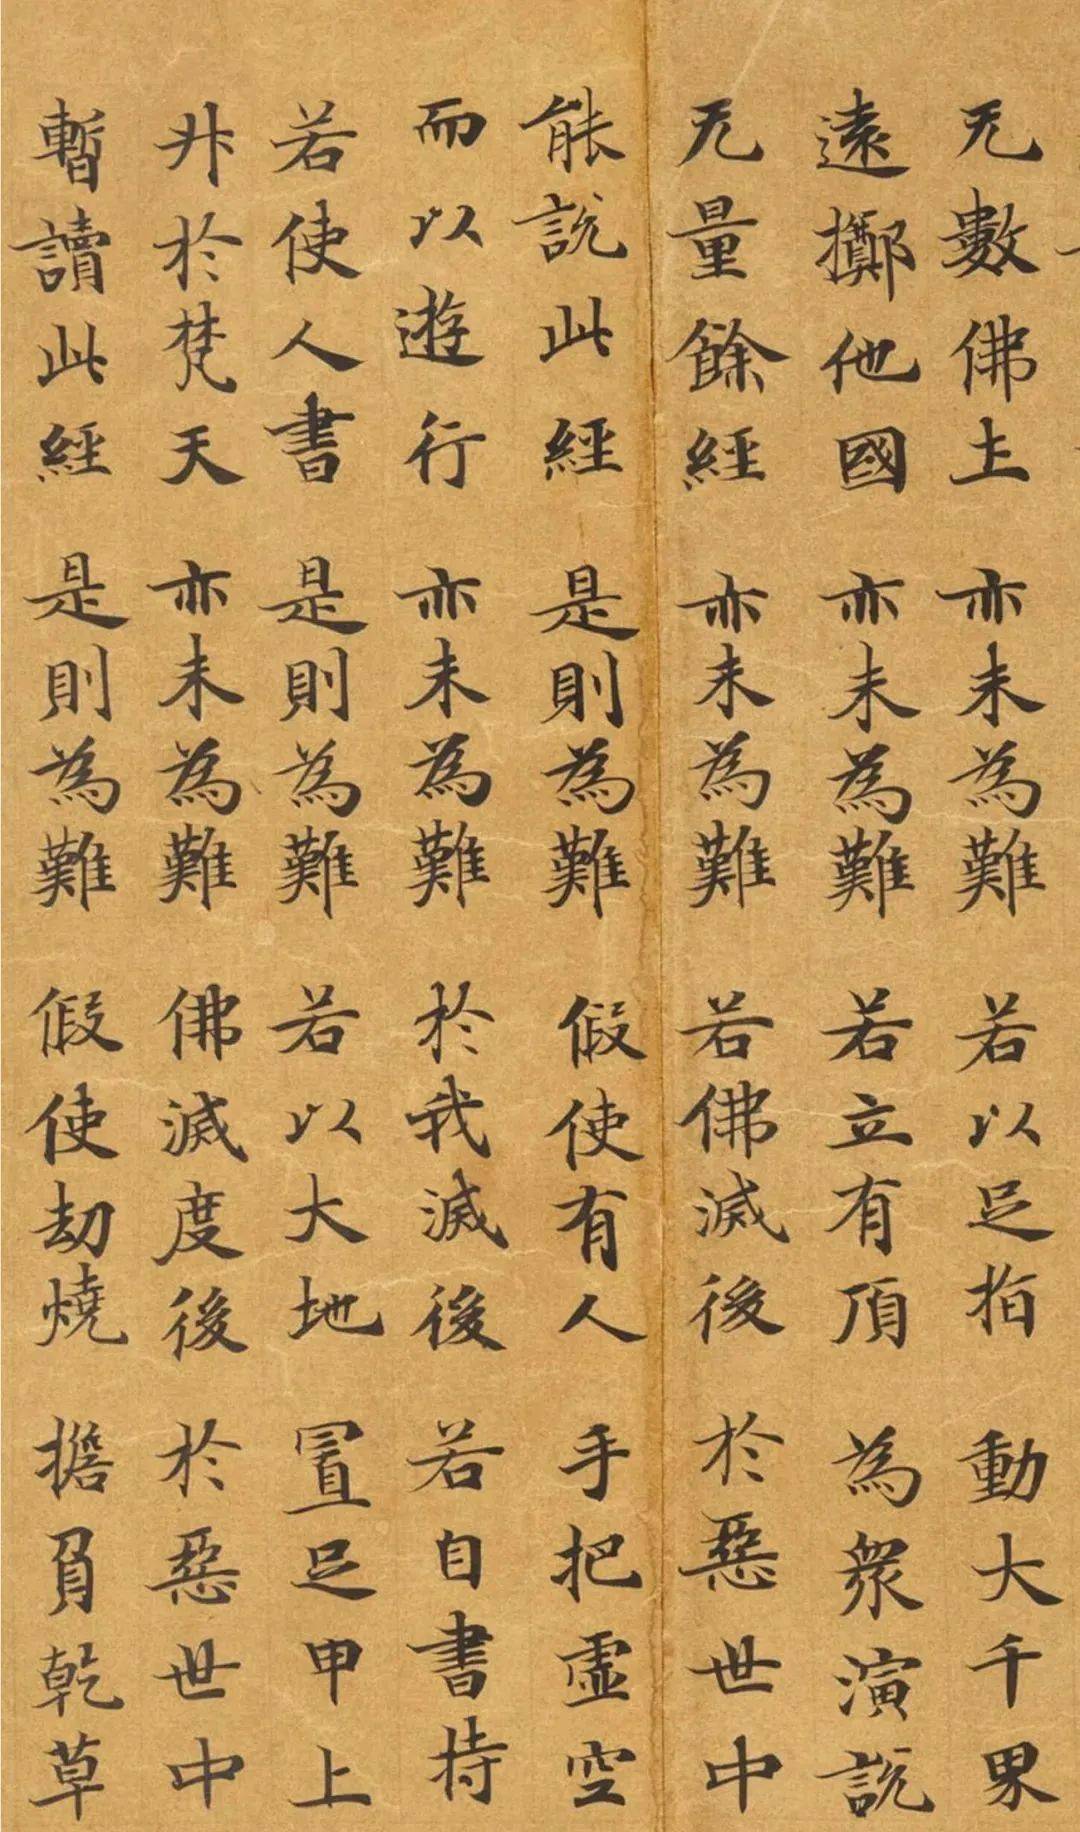 无數佛土 亦未為難 若以足指 動大千界
遠擲他國 亦未為難 若立有頂 為衆演說
无量餘經 亦未為難 若佛滅後 於惡世中
能說此經 是則為難 假使有人 手把虛空
而以遊行 亦未為難 於我滅後 若自書持
若使人書 是則為難 若以大地 置足甲上
升於梵天 亦未為難 佛滅度後 於惡世中
暫讀此經 是則為難 假使劫燒 擔負乾草